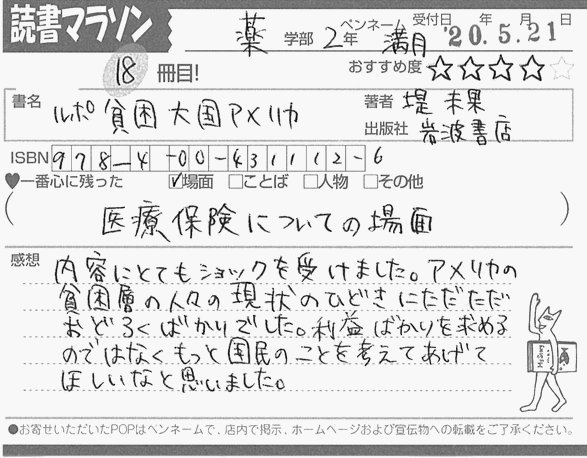 読書マラソン
薬 学部 2年 ペンネーム 満月 受付日 '20年.5月.21日
18 冊目! おすすめ度 ☆☆☆☆☆
書名 ルポ 貧困大国アメリカ 著者 堤 未果
出版社 岩波書店
ISBN 978-4-00-431112-6
♥一番心に残った ☑場面 □ことば □人物 □その他
(医療保険についての場面)
感想 内容にとてもショックを受けました。アメリカの
貧困層の人々の現状のひどさにただただ
おどろくばかりでした。利益ばかりを求める
のではなくもっと国民のことを考えてあげて
ほしいなと思いました。
●お寄せいただいたPOPはペンネームで、店内で掲示、ホームページおよび宣伝物への転載をご了承ください。